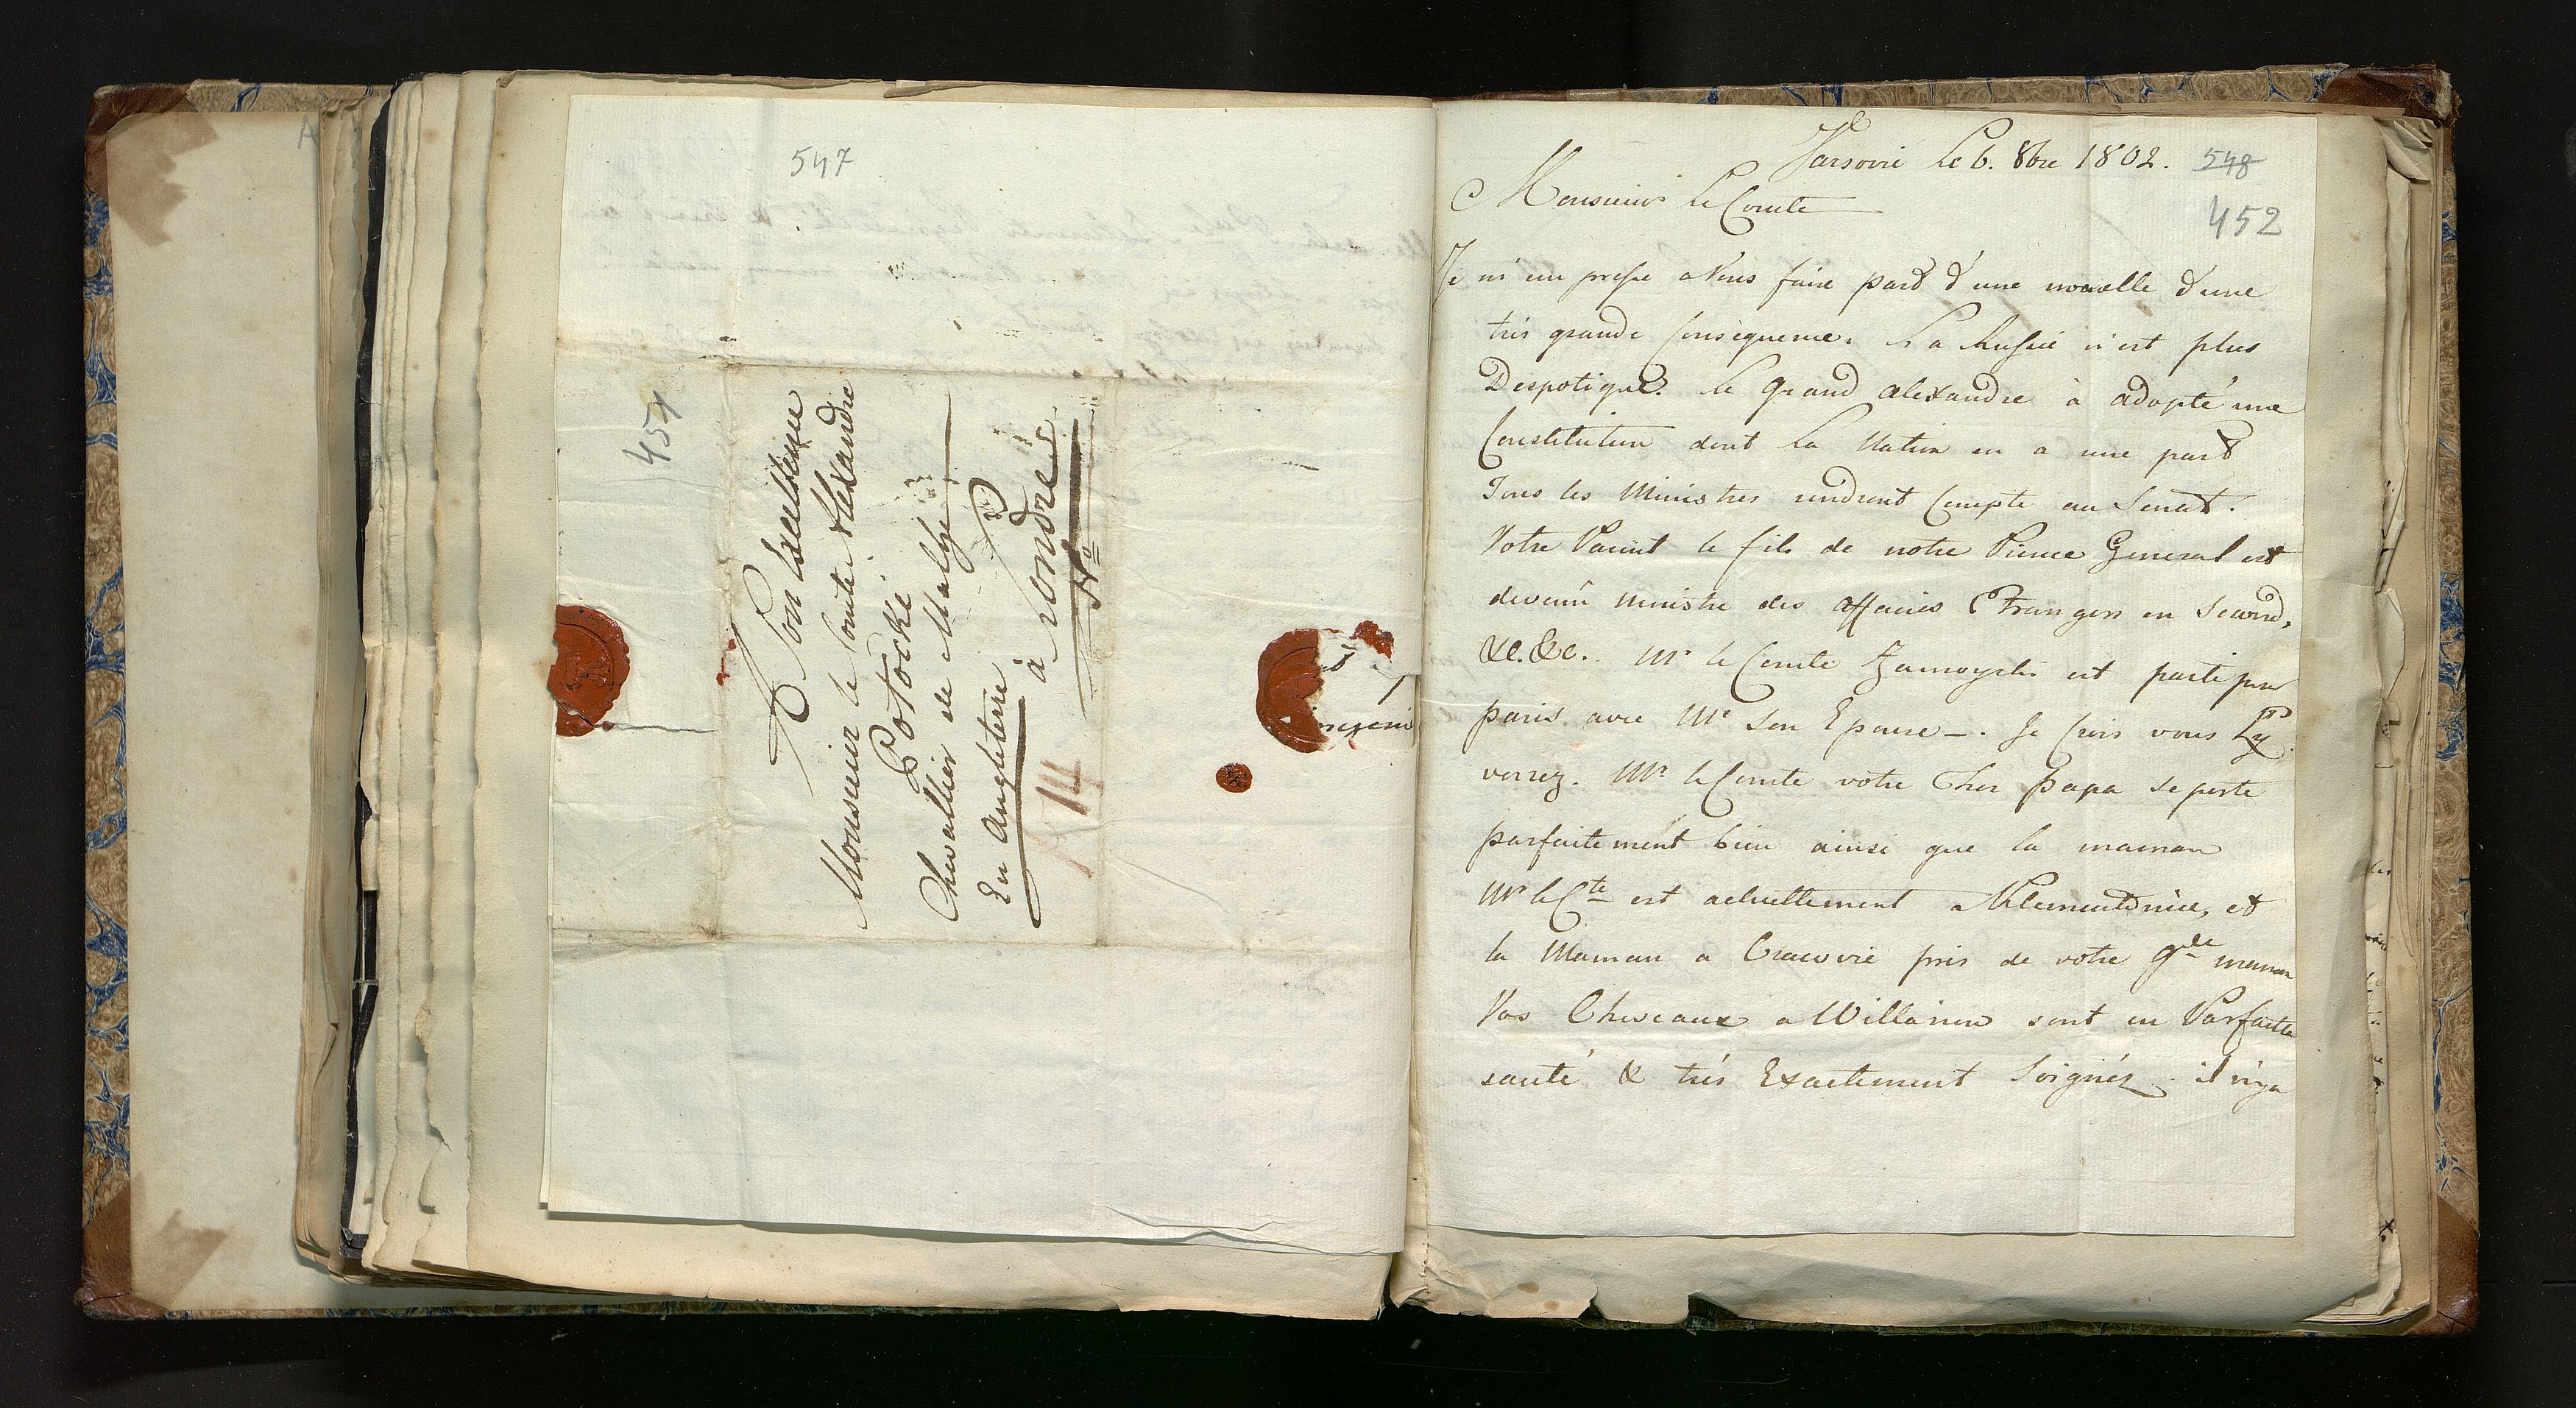 547
451
A Son Excellence
Monsieur le Comte Alexandre
Potocki
Chevallier de Malthe
En Angleterre
à Londres
No
14
Varsovie le 6. 8bre 1802.
548
452
Monsieur le Comte
Je m'empresse a Vous faire pard d'une nouvelle d'une
très grande Consequence. La Russie n'est plus
Despotique. le Grand alexandre à adopté une
Constitution dont la Nation en a une pard
Tous les Ministres rendront Compte au Senat.
Votre Parent le fils de notre Prince General est
devenu ministre des affaires Etrangers en Second,
&c.&c. Mr le Comte Zamoyski est parti pour
paris avec Me Son Epouse -. Je Crois vous l'y
verrez. Mr le Comte votre Cher papa se porte
parfaitement bien ainsi que la maman
Mr le Cte est actuellement a Klementowice, et
la Maman a Cracovie près de votre gde maman
Vos Chevaux a Willanow sont en Parfaitte
santé & très Exactement Soignéz. il n'ya